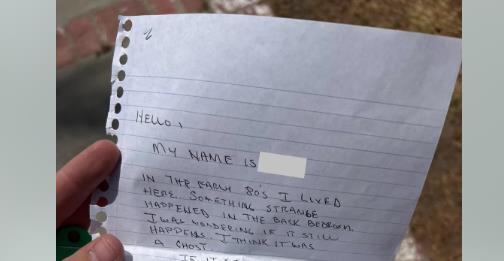 HELLO,
MY NAME IS
IN THE EARLY 80'S I LIVED
HERE. SOMETHING STRANGE
HAPPENED IN THE BACK BEDROOM.
I WAS WONDERING IF IT STILL
HAPPENS. I THINK IT WAS
A GHOST.
IF IT